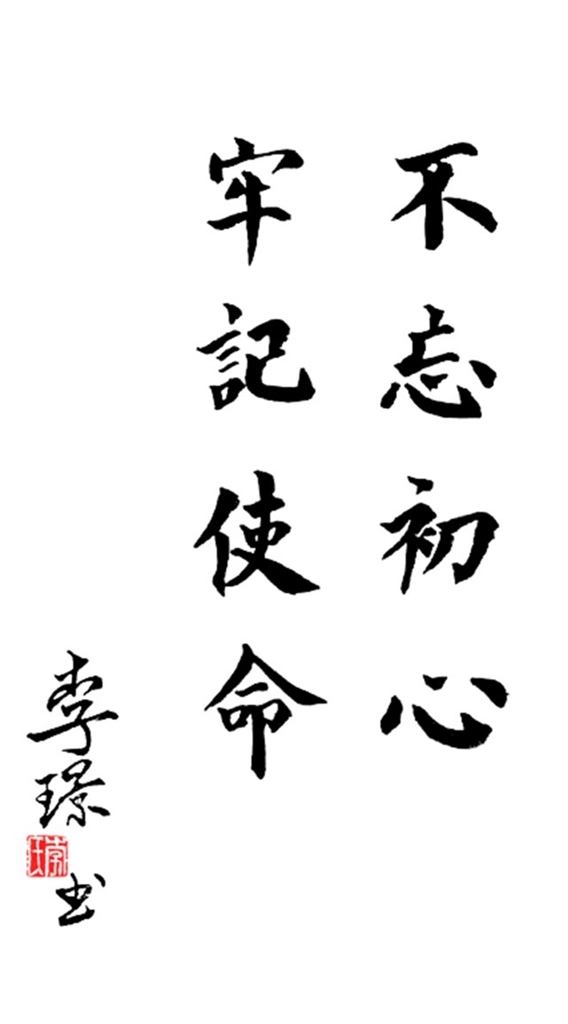 不忘初心
牢記使命
李璟书